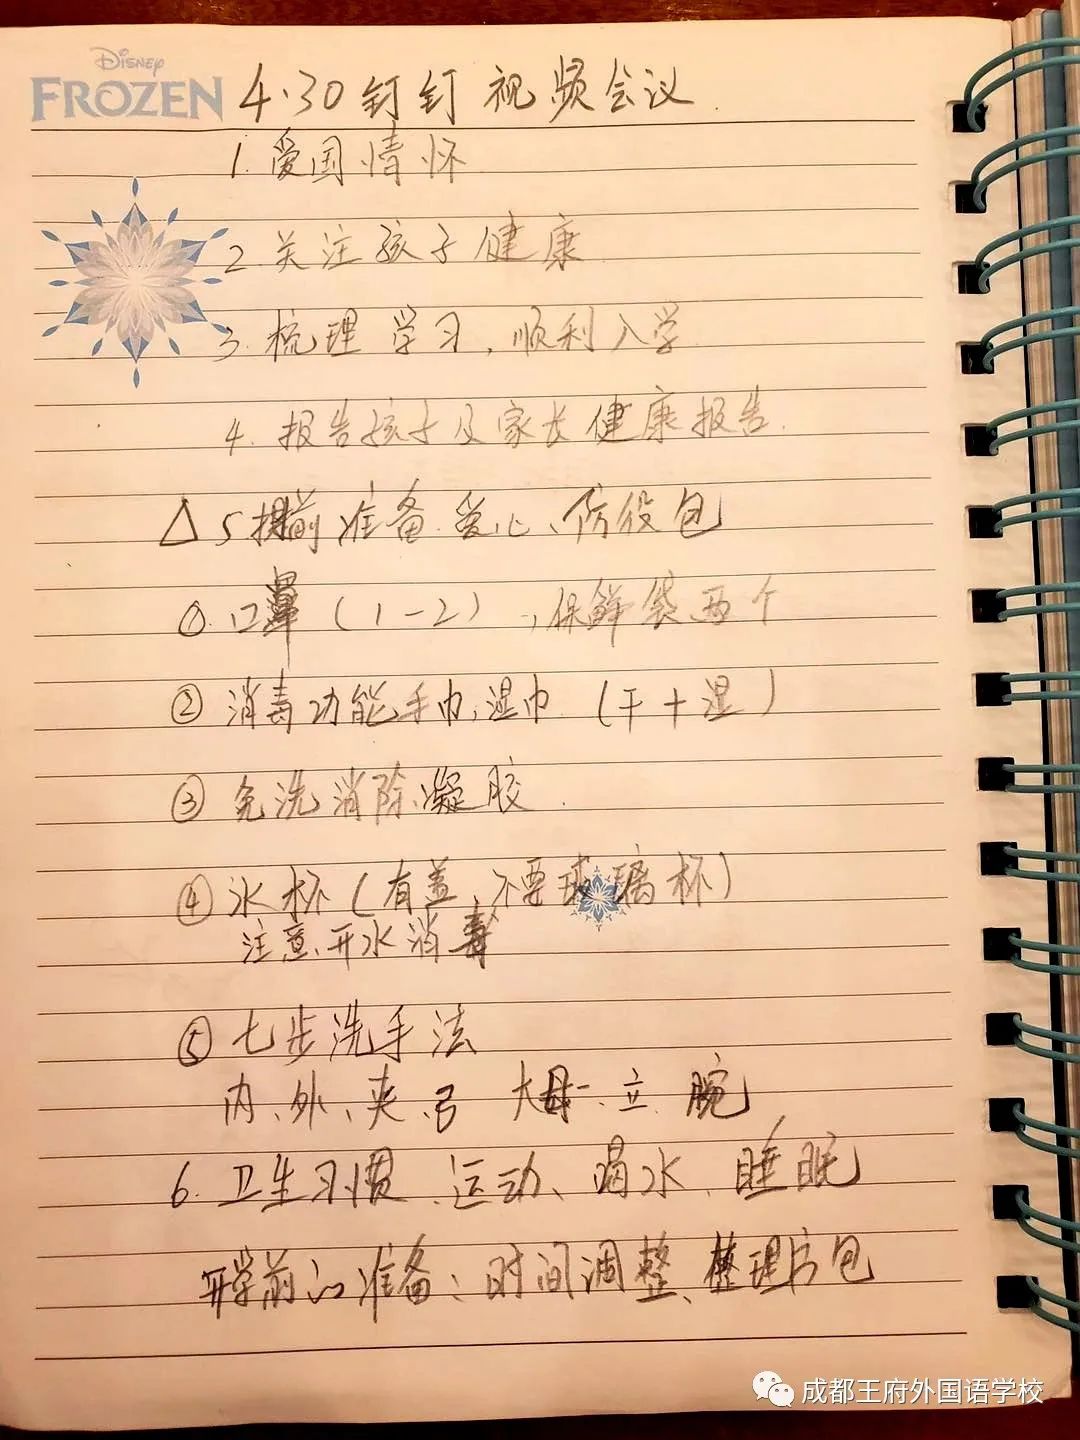 Disney
FROZEN
4.30钉钉视频会议.
1.爱国情怀
2.关注孩子健康
3.梳理学习,顺利入学
4.报告孩子及家长健康报告.
△5提前准备爱心、防役包
①.口鼻(1-2),保鲜袋两个
②消毒功能手巾,湿巾.(干+湿)
③免洗消除凝胶.
④水杯(有盖,不要玻璃杯)
注意、开水消毒
⑤七步洗手法
内、外、夹、弓 大、立.腕
6.卫生习惯、运动、喝水、睡眠
开学前的准备:时间调整、整理书包
成都王府外国语学校